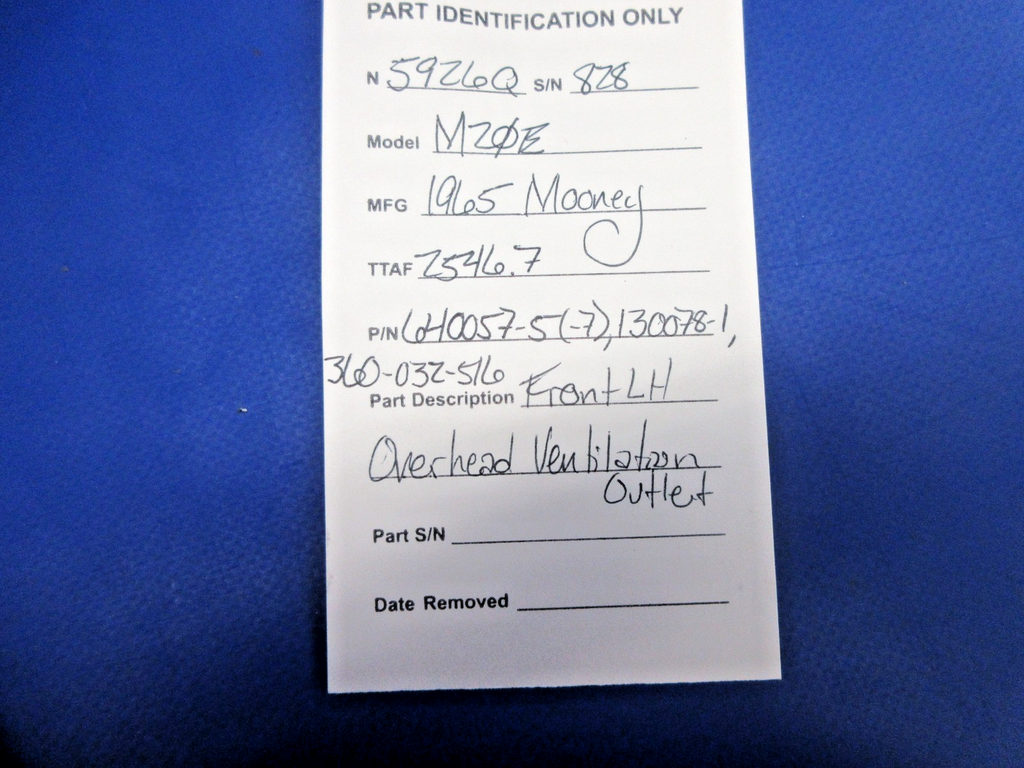 PART IDENTIFICATION ONLY
N 5926Q S/N 828
Model M20E
MFG 1965 Mooney
TTAF 2546.7
P/N 640057-5(-7), 130078-1,
360-032-516
Part Description Front LH
Overhead Ventilation
Outlet
Part S/N
Date Removed